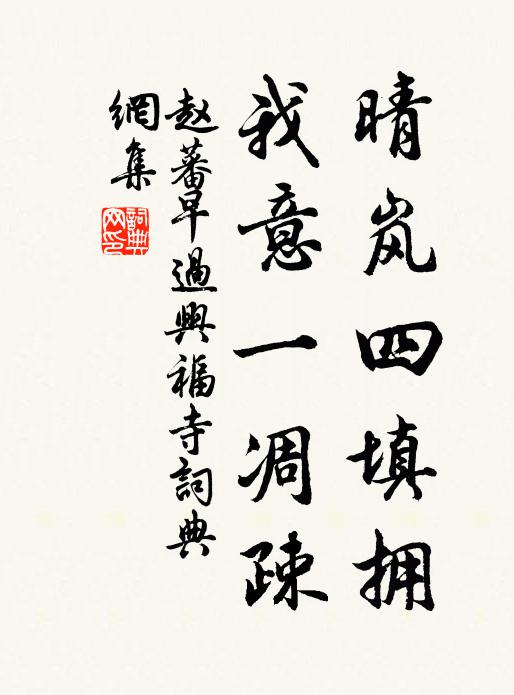 晴岚四填拥
我意一凋疎
赵蕃早過興福寺詞典
網集
詞典
网印